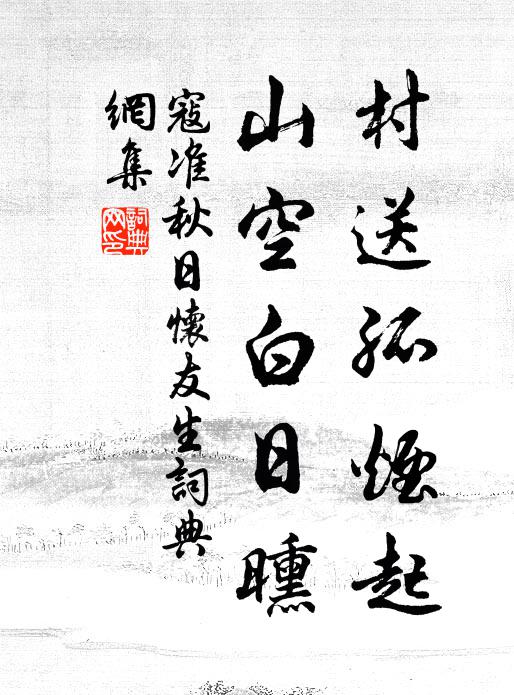 村送孤煙起
山空白日曛
寇准秋日懷友生詞典
網集
詞典
网印